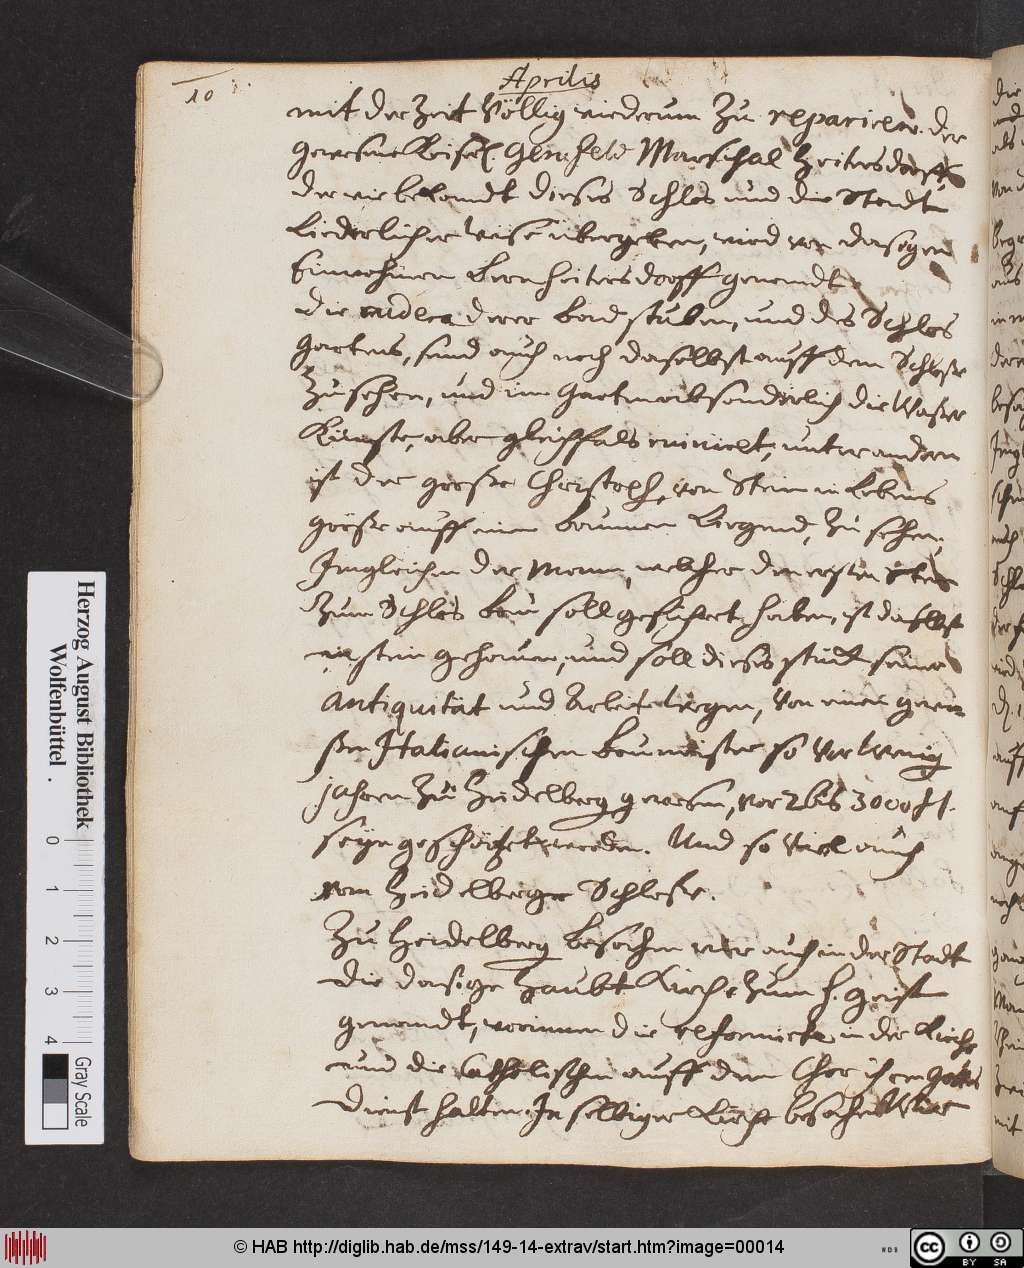 Aprilis
10
mit der Zeit Völlig wiederum Zu reparieren. der
gewesene Keisel. Genrfeld Marschal Heitersdorff,
der wie bekandt dieses Schlos und die Stadt
Liederlicher weise übergeben, wird von dasigen
Einwohnern Bernheitersdorff genendt.
Die rudera derer Bad stuben, und des Schlos
gartens, sind auch noch daselbst auff dem Schloße
Zusehen, und im garten absonderlich die Waßer
Künste, aber gleichfals ruinirt, unter andern
ist der große Christoph, von Stein in Lebens
größe auff einem Brunnen Liegend, Zu sehen,
Imgleichen der Mann, welcher den ersten Stein
Zum Schlos Bau soll geführet haben, ist daselbst
in stein gehauen, und soll dieses stück seiner
Antiquität und Arbeit wegen, Von einem gewi-
ßen Italianischen Baumeister so Vor Wenig
jahren Zu Heidelberg gewesen, vor 2 bis 3000 fl.
seyn geschätzet werden. Und so Viel auch
vom Heidelberger Schloße.
Zu Heidelberg besahen wir auch in der Stadt
die dasige Haubt Kirche Zum H. Geist
genendt, worinnen die reformirten in der Kirche
und die Catholischen auff dem Chor ihren Gottes
Dienst halten. In selbiger Kirche besahen Wir
Herzog August Bibliothek
Wolfenbüttel
0 1 2 3 4
Gray Scale
© HAB http://diglib.hab.de/mss/149-14-extrav/start.htm?image=00014
WDB
CC BY SA